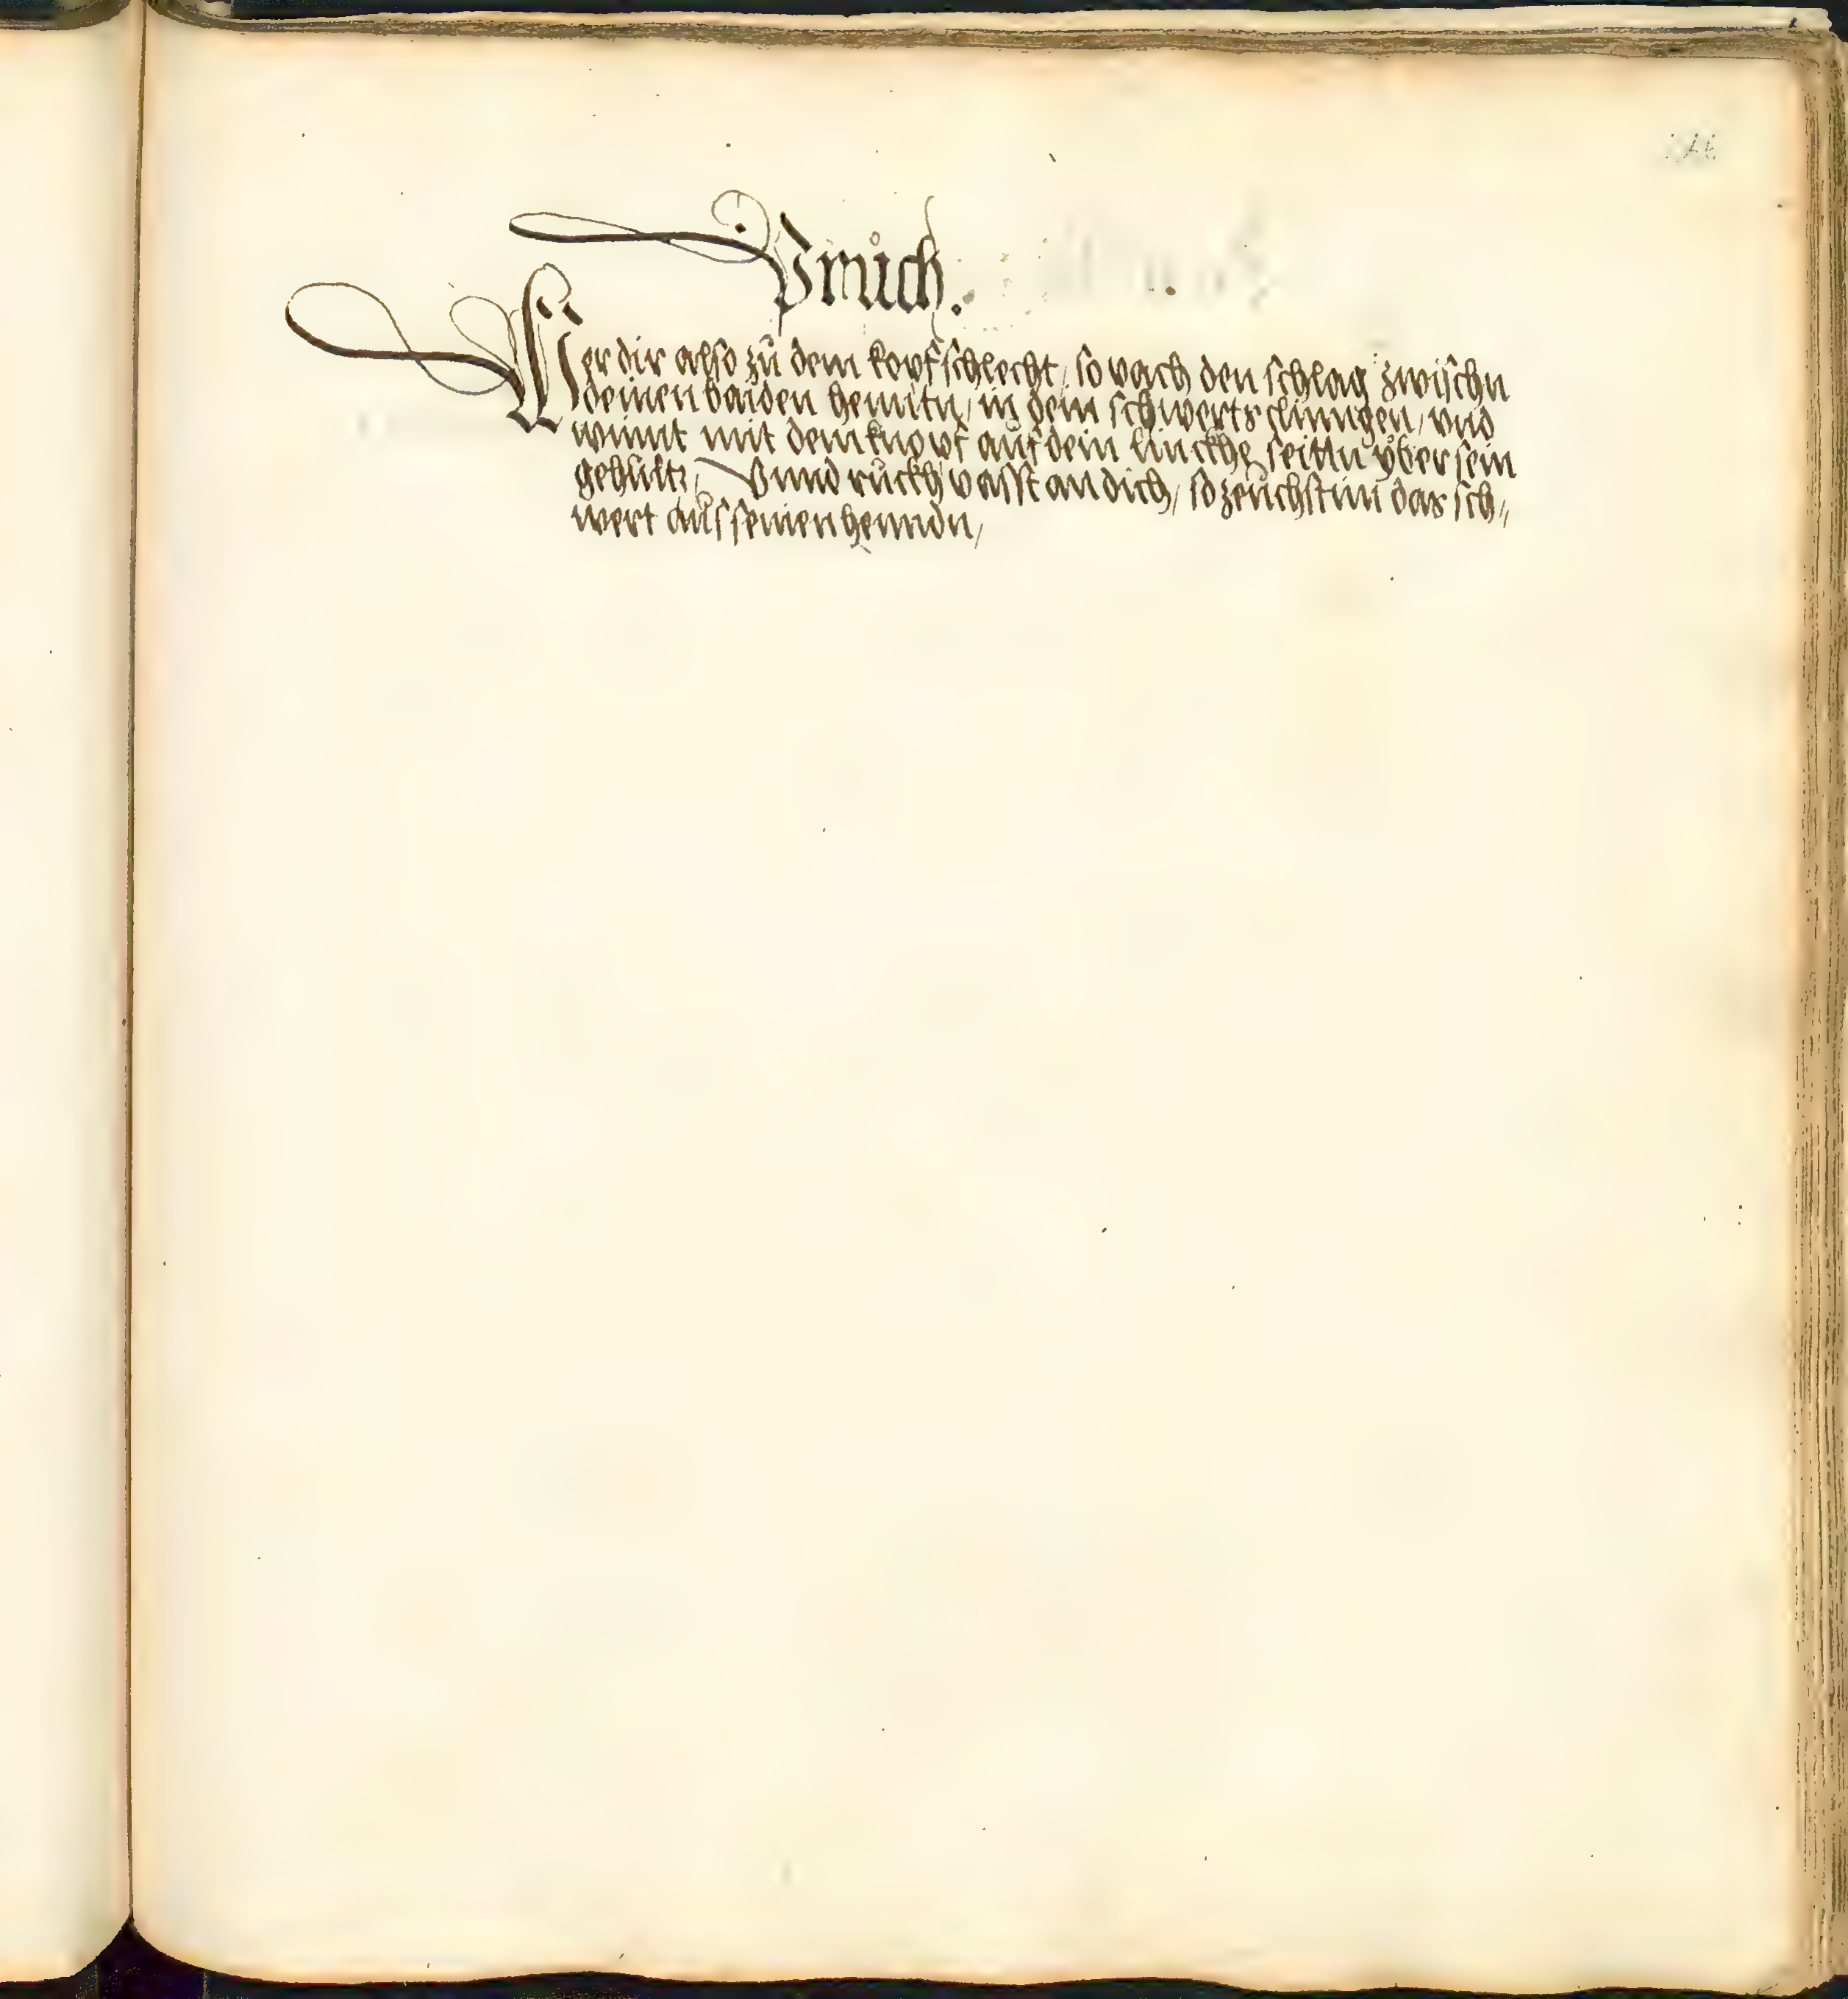 Pruͦch.
Wer dir also zuͦ dem kopf schlecht / so vach den schlag zwischn
deinen baiden henntn / in dein schwerts clinngen / vnd
winnt mit dem knopf auf dein linckhe seittn yͦber sein
gehultz / Vnnd ruckh vasst an dich / so zeuchst im das sch„
wert aus seinen henndn /